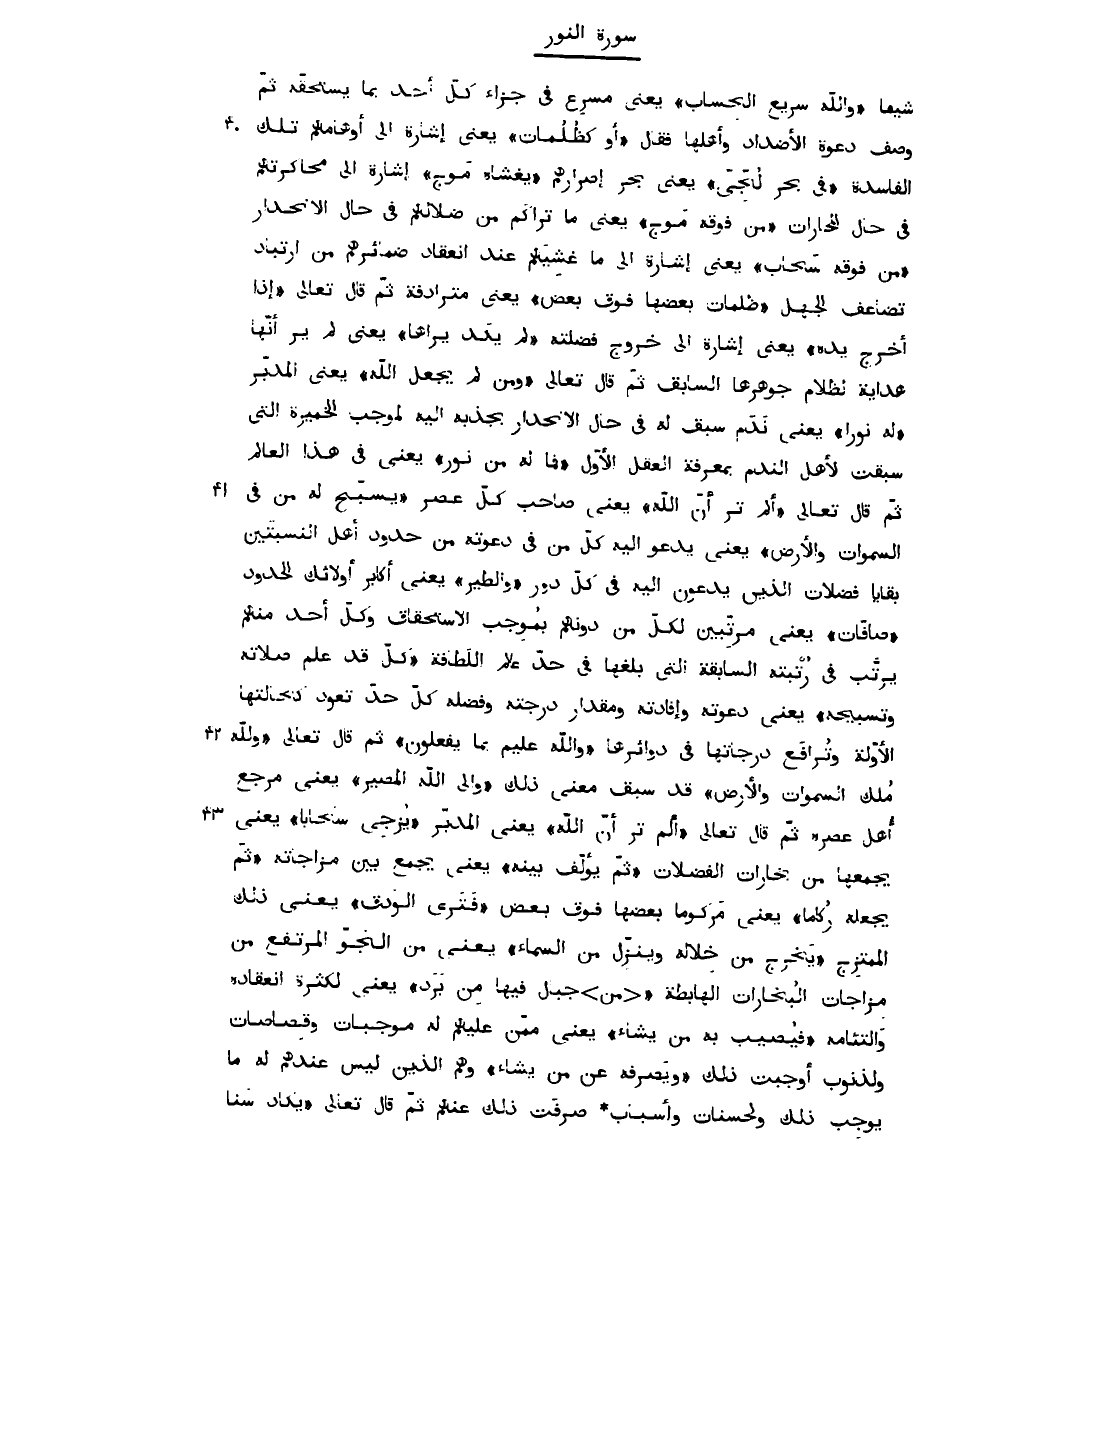 سورة النور
شيئا «والله سريع الحساب» يعنى مسرع فى جزاء كلّ أحد بما يستحقّه ثمّ
وصف دعوة الأضداد وأهلها فقال «أو كظُلُمات» يعنى إشارة الى أوهامهم تلك ۴۰
الفاسدة «فى بحر لُجّىّ» يعنى بحر إصرارهم «يغشاه مَوج» إشارة الى محاكرتهم
فى حال البخارات «من فوقه مَوج» يعنى ما تراكم من ضلالهم فى حال الانحدار
«من فوقه سَحاب» يعنى إشارة الى ما غشيَهم عند انعقاد ضمائرهم من ارتباد
تضاعف الجهل «ظلمات بعضها فوق بعض» يعنى مترادفة ثمّ قال تعالى «إذا
أخرج يده» يعنى إشارة الى خروج فضلته «لم يكد يراها» يعنى لم ير أنّها
هداية لظلام جوهرها السابق ثمّ قال تعالى «ومن لم يجعل الله» يعنى المدبّر
«له نورا» يعنى نَدَم سبق له فى حال الانحدار يجذبه اليه لموجب الخميرة التى
سبقت لأهل الندم بمعرفة العقل الأوّل «فما له من نور» يعنى فى هذا العالم
ثمّ قال تعالى «ألم تر أنّ الله» يعنى صاحب كلّ عصر «يسبّح له من فى ۴۱
السموات والأرض» يعنى يدعو اليه كلّ من فى دعوته من حدود أهل النسبتَين
بقايا فضلات الذين يدعون اليه فى كلّ دور «والطير» يعنى أكابر أولائك الحدود
«صافّات» يعنى مرتّبين لكلّ من دونهم بمُوجب الاستحقاق وكلّ أحد منهم
يرتَّب فى رُتْبته السابقة التى بلغها فى حدّ عالم اللطافة «كلّ قد علم صلاته
وتسبيحه» يعنى دعوته وإفادته ومقدار درجته وفضله كلّ حدّ تعود كحالتها
الأوّلة وتُرافَع درجاتها فى دوائرها «والله عليم بما يفعلون» ثم قال تعالى «ولله ۴۲
مُلك السموات والأرض» قد سبق معنى ذلك «والى الله المصير» يعنى مرجع
أهل عصره ثمّ قال تعالى «ألم تر أنّ الله» يعنى المدبّر «يُزجى سَحابا» يعنى ۴۳
يجمعها من بخارات الفضلات «ثمّ يؤلّف بينه» يعنى يجمع بين مزاجاته «ثمّ
يجعله رُكاما» يعنى مَركوما بعضها فوق بعض «فتَرى الوَدق» يعنى ذلك
الممتزج «يَخرج من خلاله وينزّل من السماء» يعنى من الجوّ المرتفع من
مزاجات البُخارات الهابطة «<من> جبل فيها مِن بَرَد» يعنى لكثرة انعقاده
والتئامه «فيُصيب به من يشاء» يعنى ممّن عليهم له موجبات وقصاصات
ولذنوب أوجبت ذلك «ويَصرفه عن من يشاء» وهم الذين ليس عندهم له ما
يوجب ذلك ولحسنات وأسباب* صرفَت ذلك عنهم ثمّ قال تعالى «يكاد سَنا